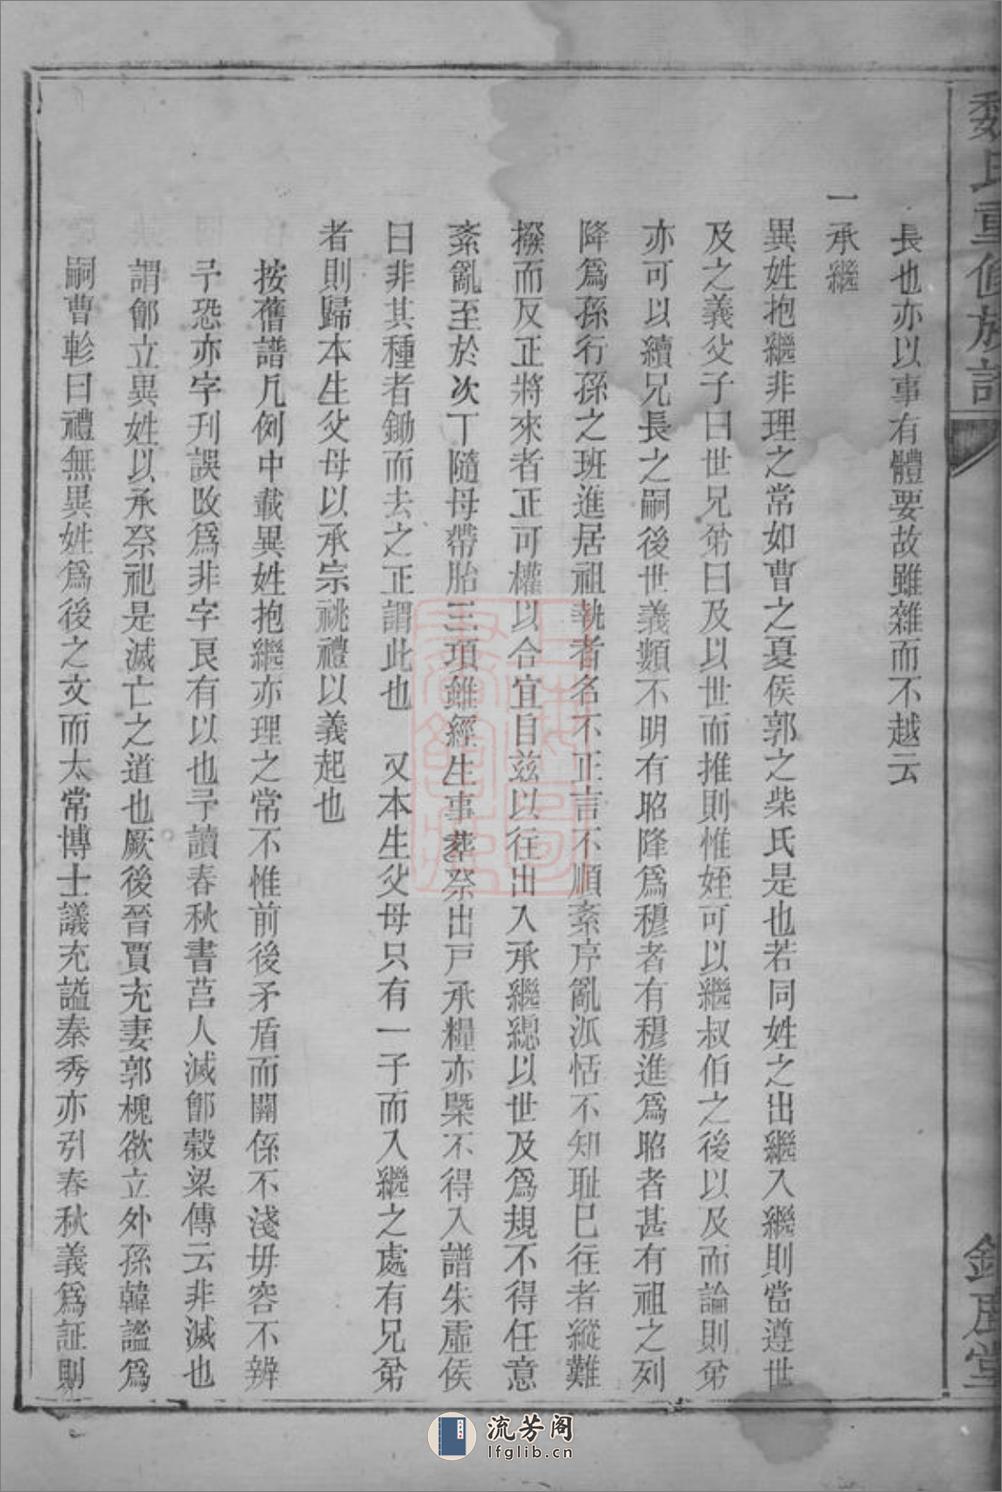 魏氏重修族譜
長也亦以事有體要故雖雜而不越云
一承繼
異姓抱繼非理之常如曹之夏侯郭之柴氏是也若同姓之出繼入繼則當遵世
及之義父子曰世兄弟曰及以世而推則惟姪可以繼叔伯之後以及而論則弟
亦可以續兄長之嗣後世義類不明有昭降爲穆者有穆進爲昭者甚有祖之列
降爲孫行孫之班進居祖執者名不正言不順紊序亂派恬不知耻已往者縱難
撥而反正將來者正可權以合宜自兹以往出入承繼總以世及爲規不得任意
紊亂至於次丁隨母帶胎三項雖經生事葬祭出戸承糧亦槩不得入譜朱虛侯
曰非其種者鋤而去之正謂此也 又本生父母只有一子而入繼之處有兄弟
者則歸本生父母以承宗祧禮以義起也
按舊譜凡例中載異姓抱繼亦理之常不惟前後矛盾而關係不淺毋容不辨
予恐亦字刋誤改爲非字艮有以也予讀春秋書莒人滅鄫穀梁傳云非滅也
謂鄫立異姓以承祭祀是滅亡之道也厥後晉賈充妻郭槐欲立外孫韓謐爲
嗣曹軫曰禮無異姓爲後之文而太常博士議充謚秦秀亦引春秋義爲証則
流芳阁
lfglib.cn